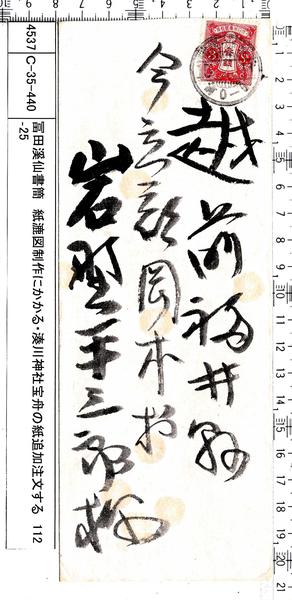 越前福井縣
今立郡岡本村
岩野平三郎様
4537 C-35-440
冨田溪仙書簡 紙漉図制作にかかる・湊川神社宝舟の紙追加注文する 112
-25